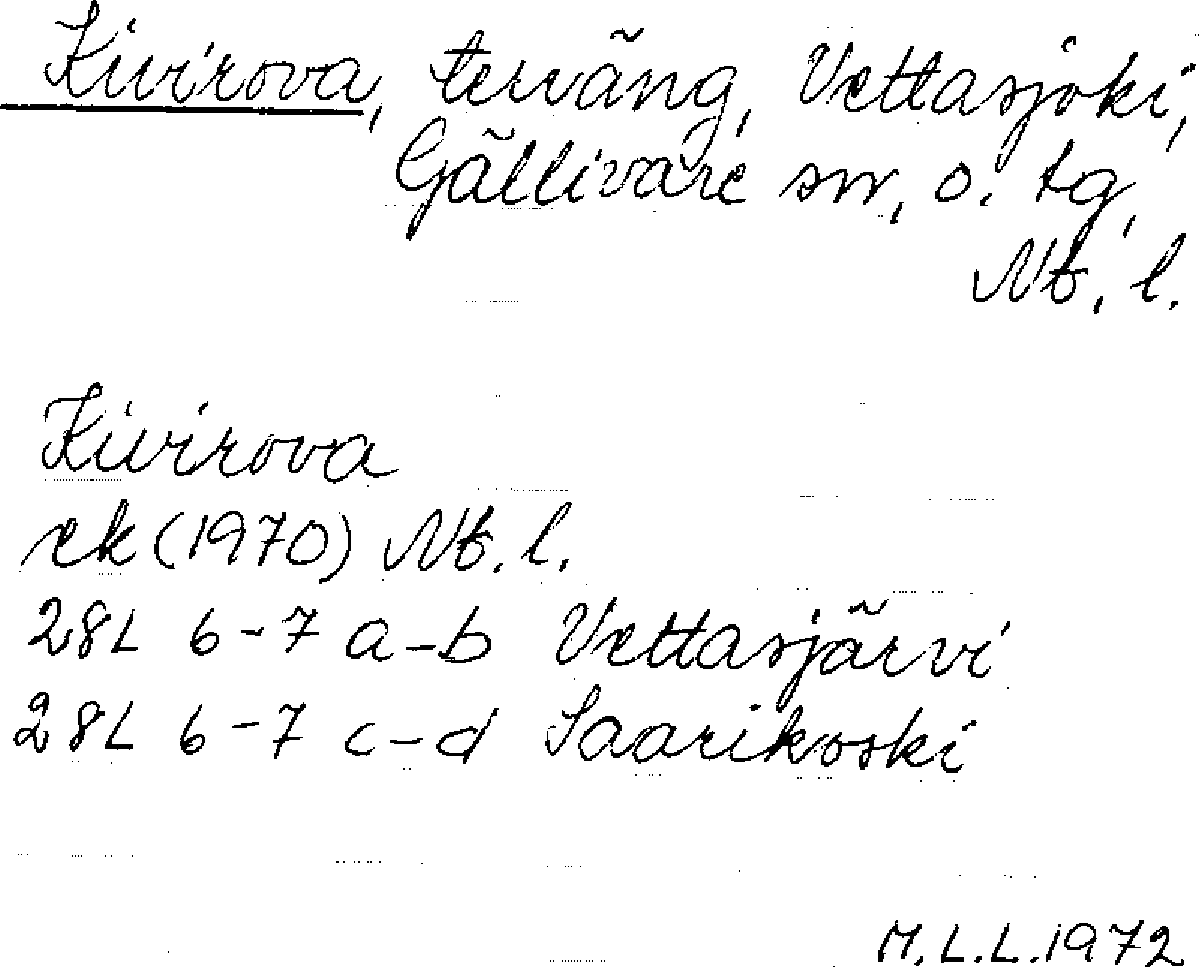 Kivirova, terräng, Vettasjoki,
Gällivare sn, o. tg,
Nb. l.
Kivirova
ek (1970) Nb. l.
28L 6-7 a-b Vettasjärvi
28L 6-7 c-d Saarikoski
M.L.L.1972